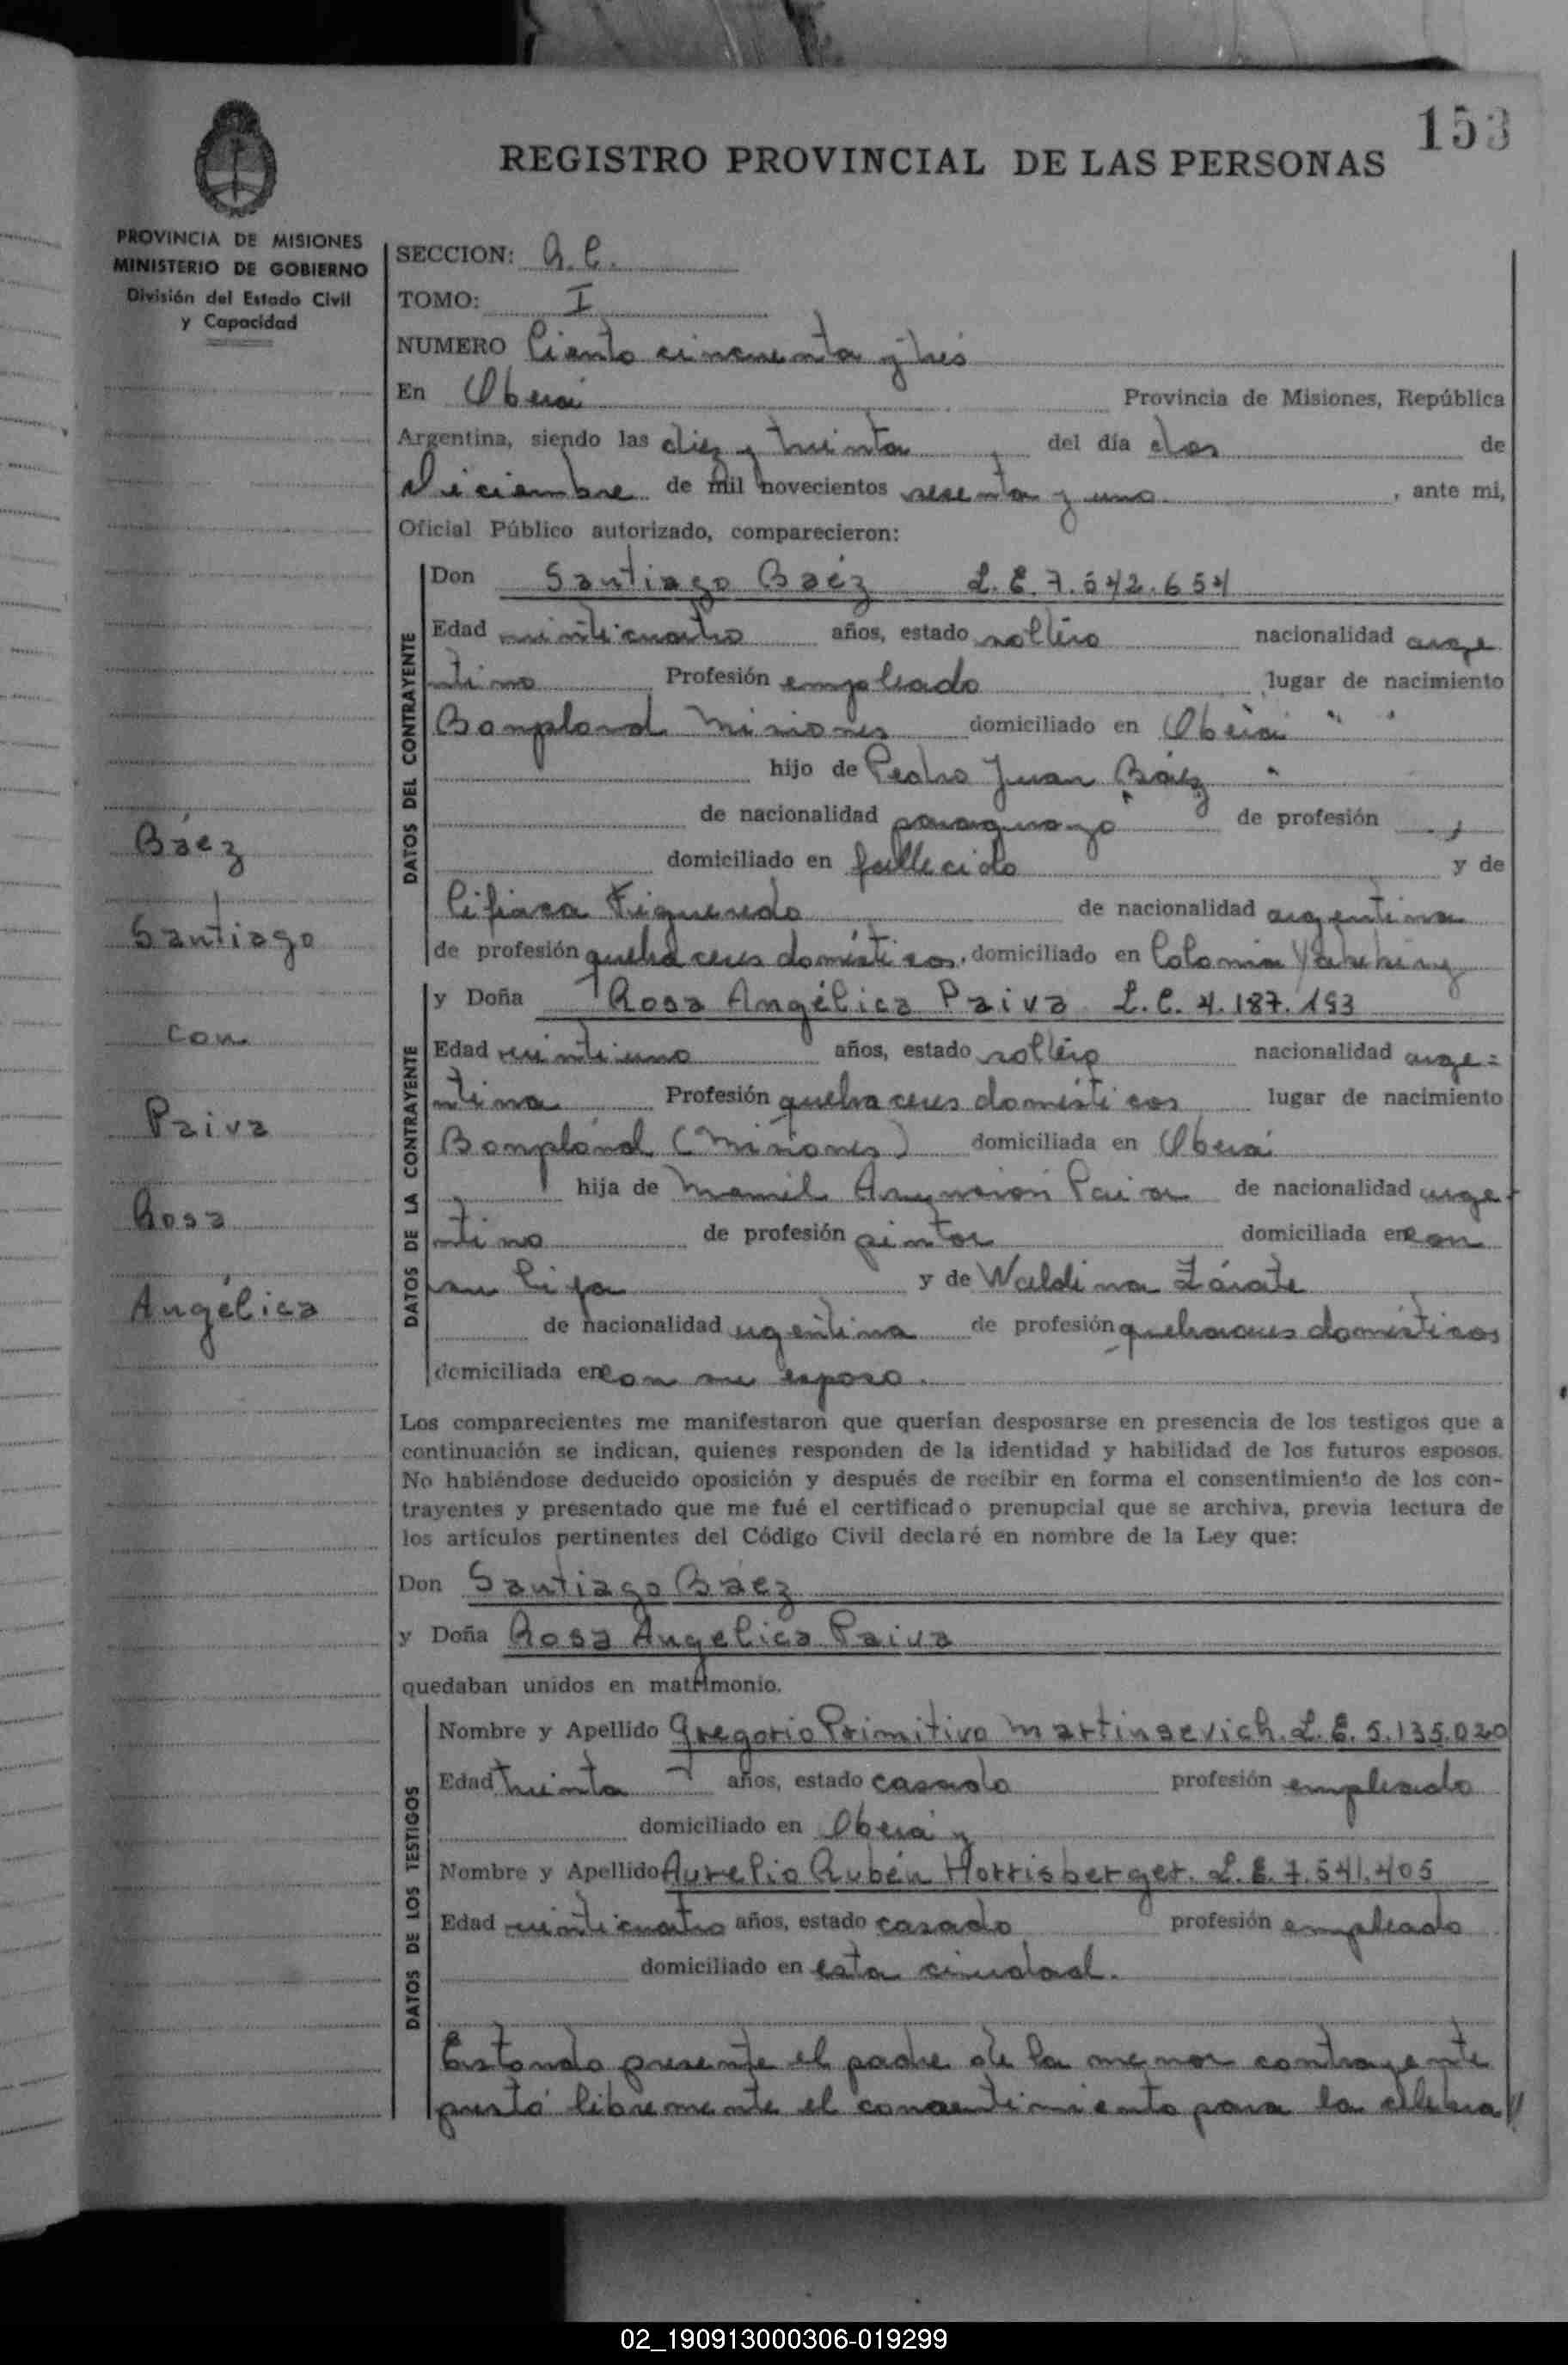 153
REGISTRO PROVINCIAL DE LAS PERSONAS
PROVINCIA DE MISIONES
MINISTERIO DE GOBIERNO
División del Estado Civil
y Capacidad
SECCION:
TOMO: I
NUMERO Ciento cincuenta y tres
En Oberá Provincia de Misiones, República
Argentina, siendo las diez y treinta del día dos de
Diciembre de mil novecientos sesenta y uno, ante mi,
Oficial Público autorizado, comparecieron:
DATOS DEL CONTRAYENTE
Don Santiago Baéz L.E. 7.542.654
Edad veinticuatro años, estado soltero nacionalidad arge
ntino Profesión empleado lugar de nacimiento
Bonpland Misiones domiciliado en Oberá
hijo de Pedro Juan Báez
de nacionalidad paraguayo de profesión
domiciliado en fallecido y de
Figueredo de nacionalidad argentina
de profesión quehaceres domésticos, domiciliado en Colonia
DATOS DE LA CONTRAYENTE
y Doña Rosa Angélica Paiva L.C. 4.187.193
Edad veintiuno años, estado soltera nacionalidad arge=
ntina Profesión quehaceres domésticos lugar de nacimiento
Bonpland (Misiones) domiciliada en Oberá
hija de Asunción Paiva de nacionalidad arge-
ntino de profesión pintor domiciliada en con
su hija y de Waldina Zárate
de nacionalidad argentina de profesión quehaceres domésticos
domiciliada en con su esposo.
Báez
Santiago
con
Paiva
Rosa
Angélica
Los comparecientes me manifestaron que querían desposarse en presencia de los testigos que a
continuación se indican, quienes responden de la identidad y habilidad de los futuros esposos.
No habiéndose deducido oposición y después de recibir en forma el consentimiento de los con-
trayentes y presentado que me fué el certificado prenupcial que se archiva, previa lectura de
los artículos pertinentes del Código Civil declaré en nombre de la Ley que:
Don Santiago Báez
y Doña Rosa Angelica Paiva
quedaban unidos en matrimonio.
DATOS DE LOS TESTIGOS
Nombre y Apellido Gregorio Primitivo Martinsevich. L.E. 5.135.020
Edad treinta años, estado casado profesión empleado
domiciliado en Oberá y
Nombre y Apellido Aurelio Rubén Horrisberger. L.E. 7.541.405
Edad veinticuatro años, estado casado profesión empleado
domiciliado en esta ciudad.
Estando presente el padre de la menor contrayente
prestó libremente el consentimiento para la celebra//
02_190913000306-019299